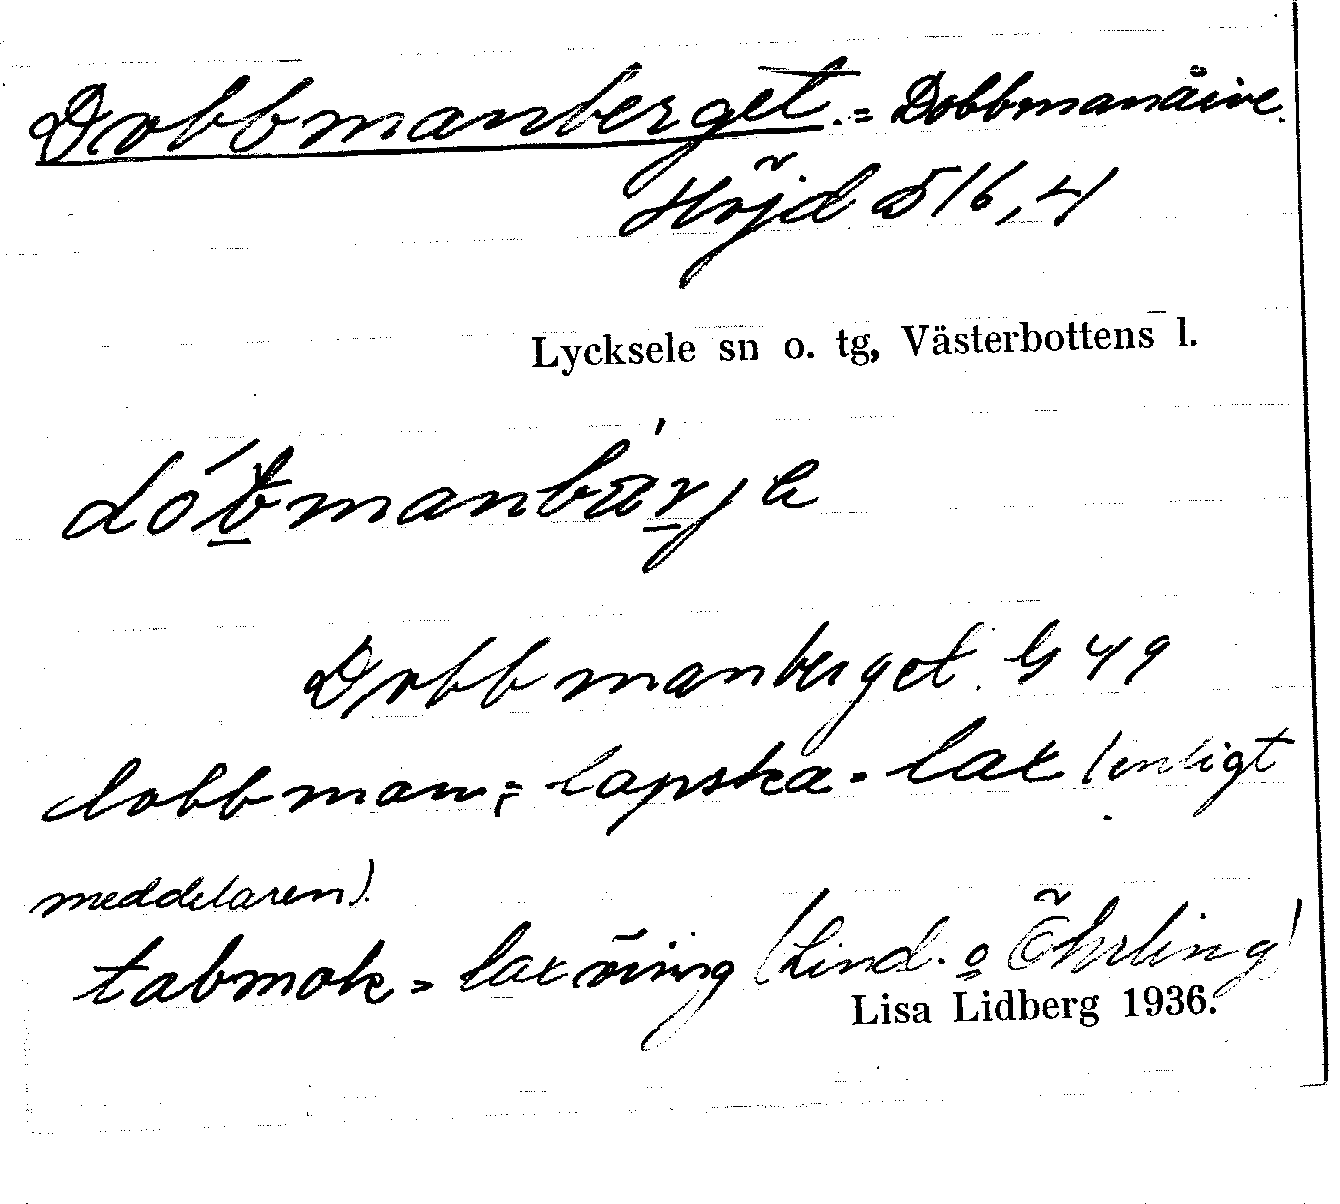 Dobbmanberget. = Dobbmanåive.
Höjd 516,4
Lycksele sn o. tg, Västerbottens l.
Dobbmanberget. G 49
dobbman, = lapska = lax (enligt
meddelaren).
tabmok = laxöring (Lind. o Öhrling)
Lisa Lidberg 1936.